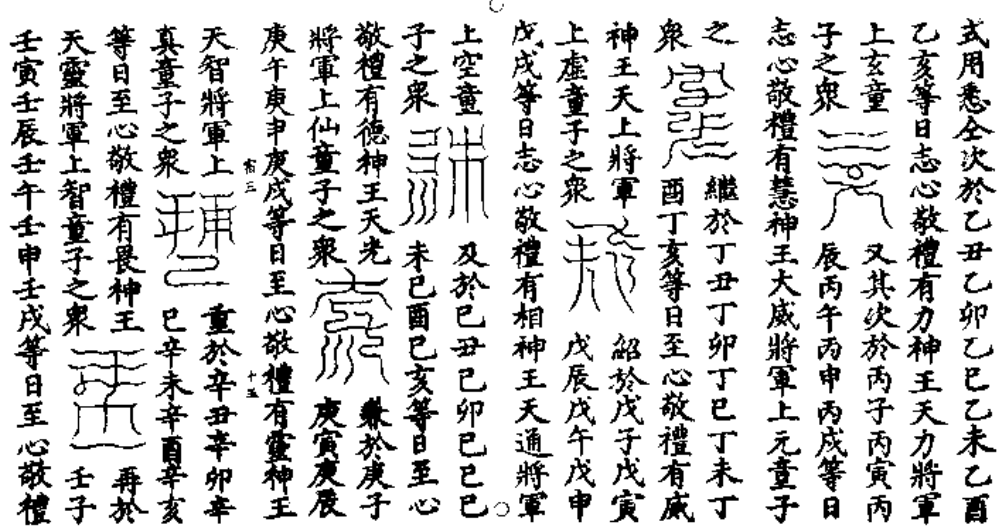 式用悉仝次於乙丑乙卯乙巳乙未乙酉
乙亥等日志心敬禮有力神王天力將軍
上玄童 又其次於丙子丙寅丙
子之眾 辰丙午丙申丙戌等日
志心敬禮有慧神王大威將軍上元童子
之 繼於丁丑丁卯丁巳丁未丁
眾 酉丁亥等日至心敬禮有威
神王天上將軍 紹於戊子戊寅
上虛童子之眾 戊辰戊午戊申
戊戌等日志心敬禮有相神王天通將軍
上空童 及於己丑己卯己巳己
子之眾 未己酉己亥等日至心
敬禮有德神王天光 於庚子
將軍上仙童子之眾 庚寅庚辰
庚午庚申庚戌等日至心敬禮有靈神王
三 十五
天智將軍上 重於辛丑辛卯辛
真童子之眾 巳辛未辛酉辛亥
等日至心敬禮有畏神王 再於
天靈將軍上智童子之眾 壬子
壬寅壬辰壬午壬申壬戌等日至心敬禮